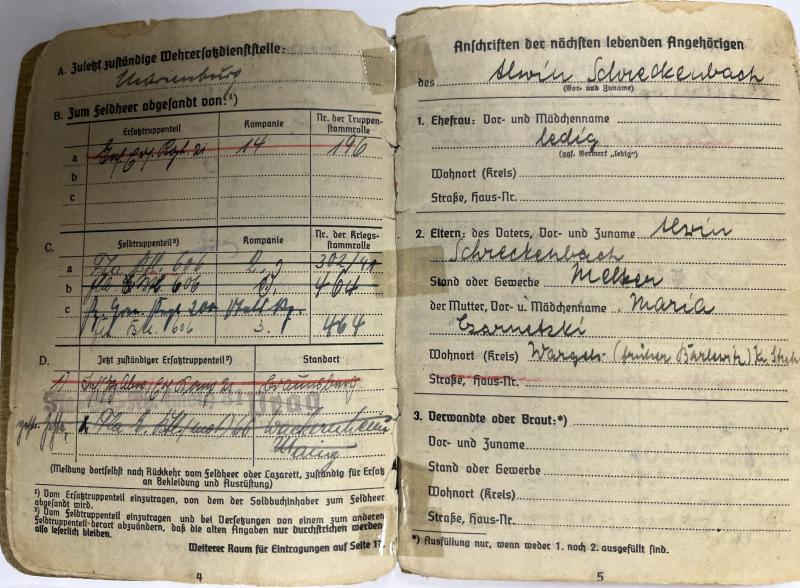 A. Zuletzt zuständige Wehrersatzdienststelle:
Marienburg
B. Zum Feldheer abgesandt von:¹)
Ersatztruppenteil Kompanie Nr. der Truppenstammrolle
a Inf. Ers. Rgt. 21 14 196
b
c
C. Feldtruppenteil²) Kompanie Nr. der Kriegsstammrolle
a Fla Btl. 606 2. 302/41
b Fla 606 464
c Rgt. 200
Btl. 606 3. 464
D. Jetzt zuständiger Ersatztruppenteil²) Standort
Ers. Komp. 21 Braunsberg
Fla E. Btl. (mot) 66 Wackernheim
Mainz
(Meldung dortselbst nach Rückkehr vom Feldheer oder Lazarett, zuständig für Ersatz
an Bekleidung und Ausrüstung)
¹) Vom Ersatztruppenteil einzutragen, von dem der Soldbuchinhaber zum Feldheer
abgesandt wird.
²) Vom Feldtruppenteil einzutragen und bei Versetzungen von einem zum anderen
Feldtruppenteil derart abzuändern, daß die alten Angaben nur durchstrichen werden,
also leserlich bleiben.
Weiterer Raum für Eintragungen auf Seite 17
4
Anschriften der nächsten lebenden Angehörigen
des Alwin Schreckenbach
(Vor- und Zuname)
1. Ehefrau: Vor- und Mädchenname
ledig
(ggf. Vermerk „ledig")
Wohnort (Kreis)
Straße, Haus-Nr.
2. Eltern: des Vaters, Vor- und Zuname Alwin
Schreckenbach
Stand oder Gewerbe Melker
der Mutter, Vor- u. Mädchenname Maria
Czarnetzki
Wohnort (Kreis) Wargels (früher Bärlewitz) Kr.
Straße, Haus-Nr.
3. Verwandte oder Braut:*)
Vor- und Zuname
Stand oder Gewerbe
Wohnort (Kreis)
Straße, Haus-Nr.
*) Ausfüllung nur, wenn weder 1. noch 2. ausgefüllt sind.
5